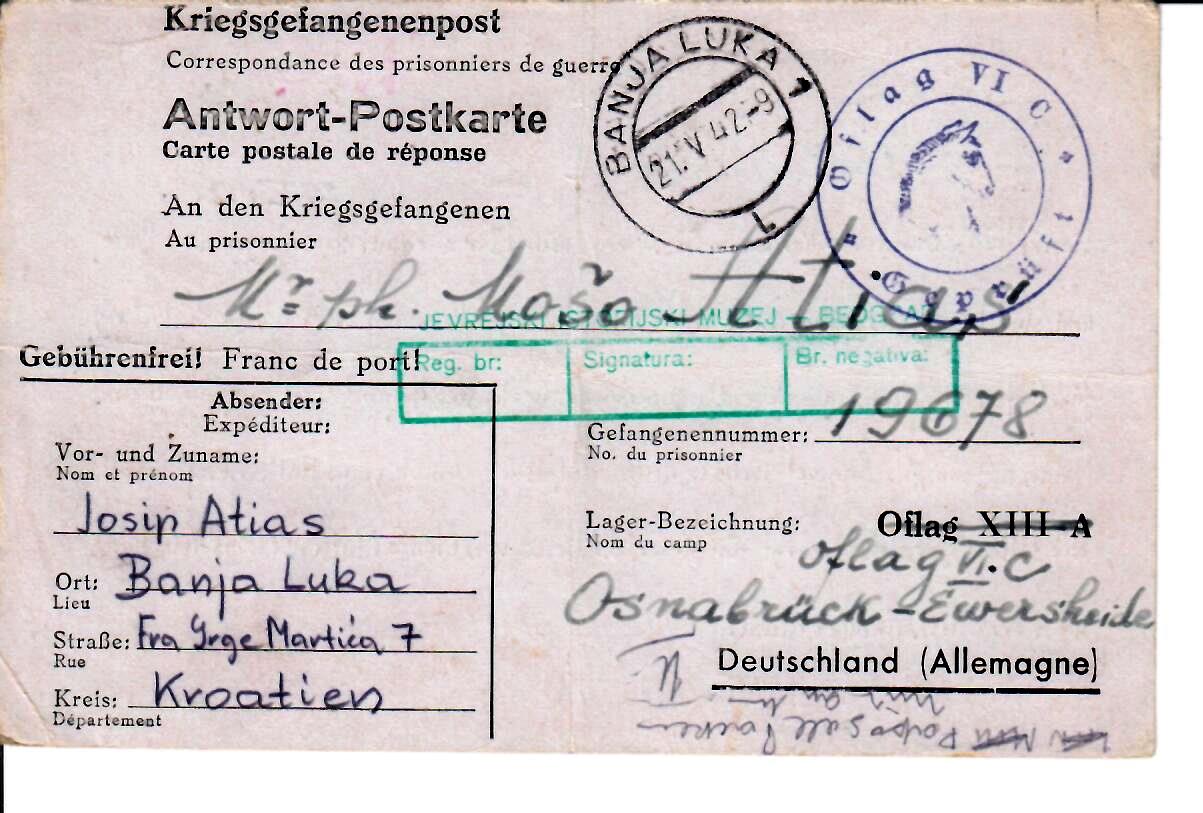 Kriegsgefangenenpost
Correspondance des prisonniers de guerre
Antwort-Postkarte
Carte postale de réponse
BANJA LUKA 1
21.V 42.-9
L
Oflag VI C
Geprüft
An den Kriegsgefangenen
Au prisonnier
Mr ph. Mošo Atias
JEVREJSKI ISTORIJSKI MUZEJ — BEOGRAD
Reg. br: Signatura: Br. negativa:
Gebührenfrei! Franc de port!
Absender:
Expéditeur:
Vor- und Zuname:
Nom et prénom
Josip Atias
Ort: Banja Luka
Lieu
Straße: Fra Grge Martića 7
Rue
Kreis: Kroatien
Département
Gefangenennummer: 19678
No. du prisonnier
Lager-Bezeichnung: Oflag XIII-A
Nom du camp
Oflag VI.C
Osnabrück-Ewersheide
Deutschland (Allemagne)